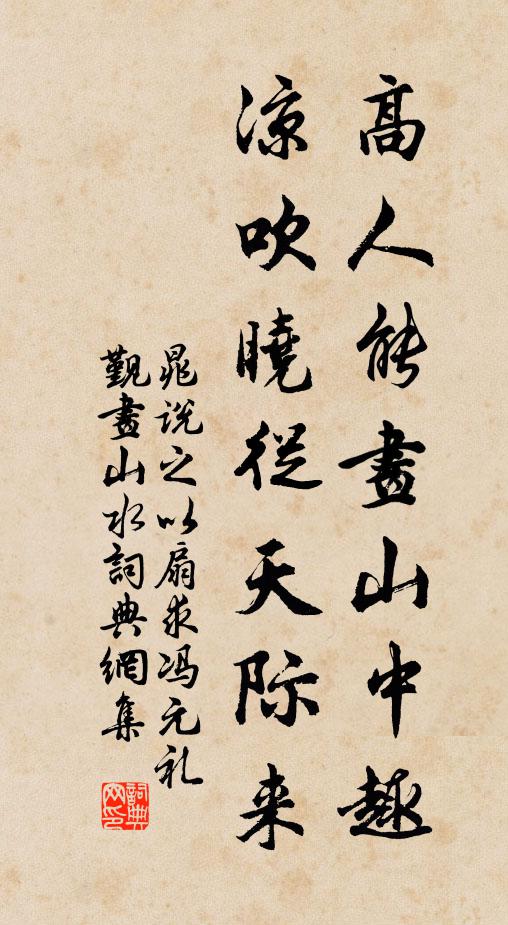 高人能畫山中趣
凉吹曉從天际来
晁说之以扇求冯元礼
觀畫山水詞典網集
詞典网印